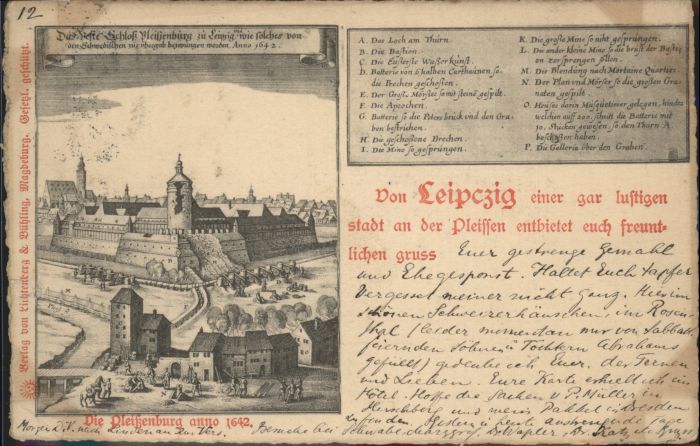 12
Das Veste Schloß Pleißenburg zu Leipzig wie solches von
den Schwedischen mit übergab bezwungen worden Anno 1642.
A. Das Loch am Thurn.
B. Die Bastion.
C. Die Eusterste Wasserkunst.
D. Batterie von 6 halben Carthaunen so
die Brechen geschossen.
E. Der Große Mörser so mit steine gespilt.
F. Die Aprochen.
G. Batterie so die Peters bruck und den Gra
ben bestrichen.
H. Die geschoßene Brechen.
I. Die Mine so gesprungen.
K. Die große Mine so niht gesprungen.
L. Die ander kleine Mine so die brust der Basti
on zersprengen sollen.
M. Die Blendung nach Martains Quartier.
N. Der Plan und Mörser so die großen Gra
naten gespilt.
O. Heuser darin Musquetirer gelegen, hindter
welchen auff 200. schritt die Batterie mit
10. Stücken gewesen so den Thurn A
beschossen haben.
P. Die Galleria über den Graben.
Verlag von Lichtenberg & Bühling, Magdeburg. Gesetzl. geschützt.
Von Leipczig einer gar lustigen
stadt an der Pleissen entbietet euch freunt-
lichen gruss
Euer gestrenge Gemahl
und Ehegesponst. Haltet Euch tapfer
Vergesset meiner nicht ganz. Hier im
schönen Schweizerhäuschen, im Rosen-
thal (leider momentan nur von Sabbath
feiernden Söhnen u Töchtern Abrahams
gefüllt) gedenke ich Euer, der Fernen
und Lieben. Eure Karte erhielt ich im
Hôtel. Hoffe die Sachen v P. Müller in
Hirschberg und mein Packet in Dresden
Die Pleißenburg anno 1642.
Morgen nach Lindenau